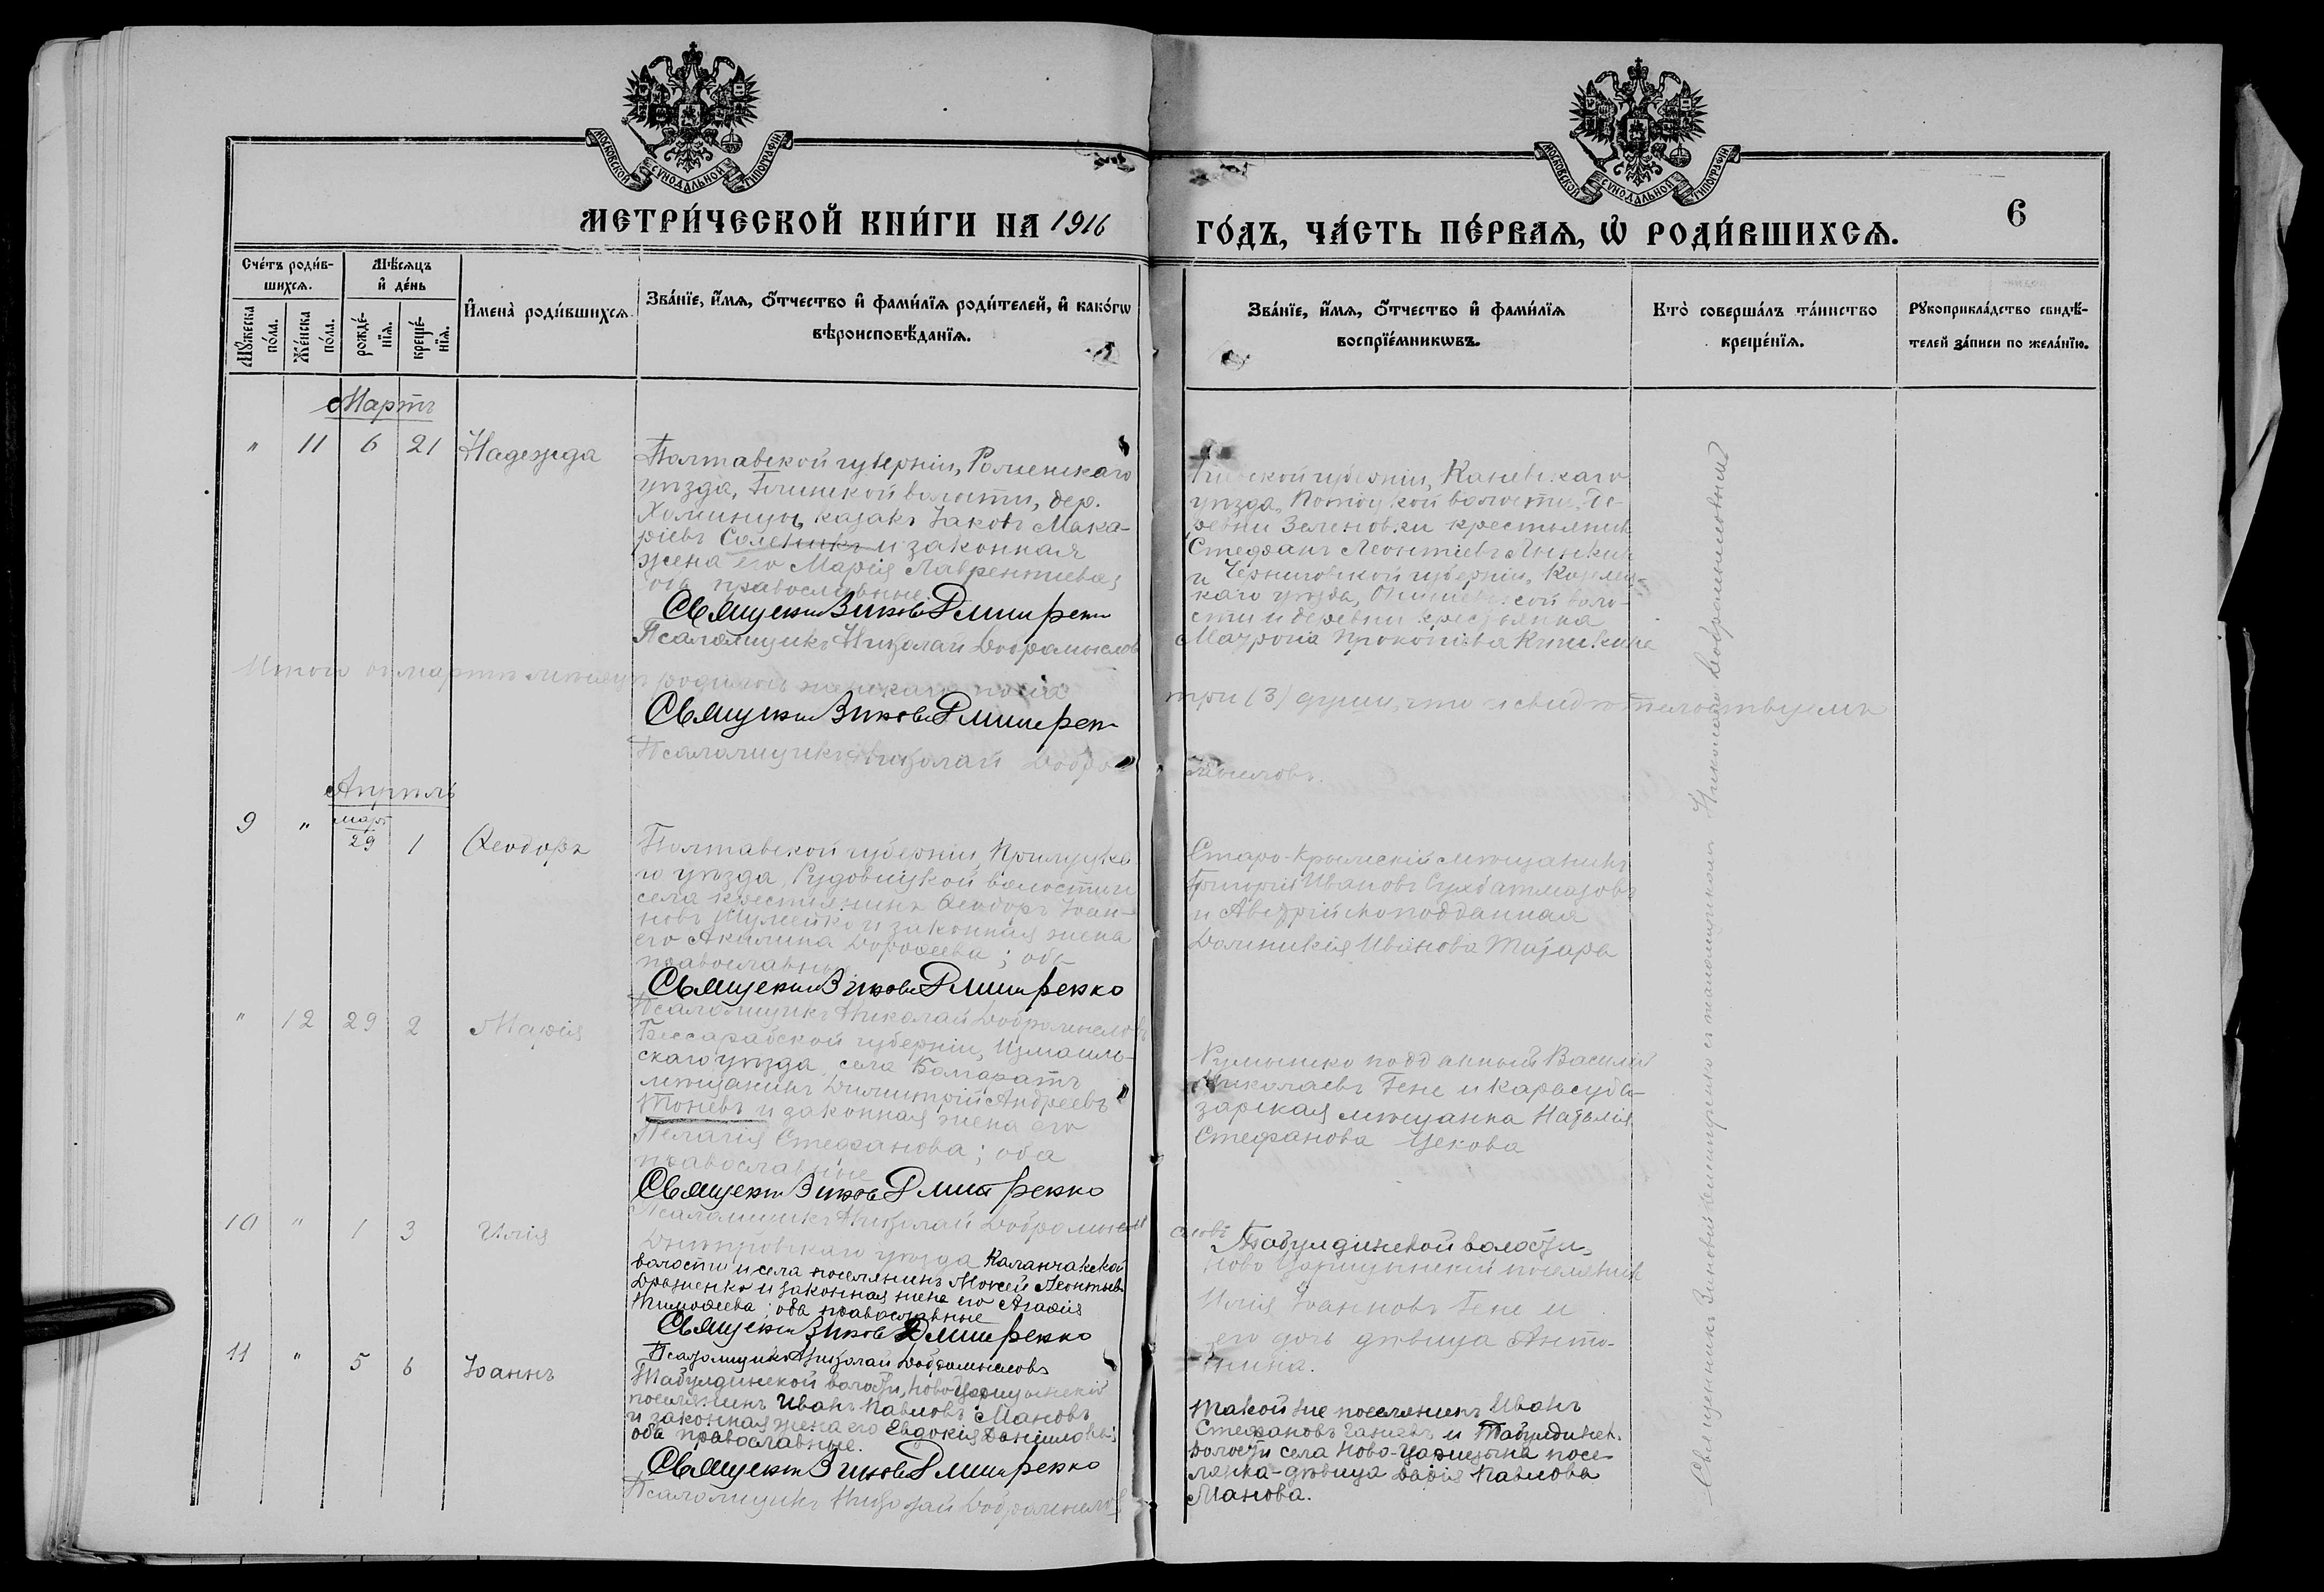 МОСКОВСКОЙ СѴНОДАЛЬНОЙ ТИПОГРАФІИ
МОСКОВСКОЙ СѴНОДАЛЬНОЙ ТИПОГРАФІИ
МЕТРИ́ЧЕСКОЙ КНИ́ГИ НА 1916
ГО́ДЪ, ЧА́СТЬ ПЕ́РВАЯ, Ѡ҆ РОДИ́ВШИХСЯ.
6
Сче́тъ роди́в-
шихся.
Мѣ́сяцъ
и҆ де́нь
Му́жеска по́ла.
Же́нска по́ла.
рожде́-
нїя.
креще́-
нїя.
И҆мена̀ роди́вшихся.
Зва́нїе, и҆́мя, ѻ҆́тчество и҆ фами́лїя роди́телей, и҆ како́гѡ
вѣроисповѣ́данїя.
Зва́нїе, и҆́мя, ѻ҆́тчество и҆ фами́лїя
воспрїе́мникѡвъ.
Кто̀ соверша́лъ та́инство
креще́нїя.
Рꙋкоприкла́дство свидѣ́-
телей за́писи по жела́нїю.
Мартъ
" 11 6 21 Надежда
Полтавской губерніи, Роменскаго
уѣзда, Глинской волости, дер.
Хоминцы, казакъ Іаковъ Мака-
ріевъ Соленикъ и законная
жена его Марія Лаврентіева;
оба православные.
Священникъ Зиновій Дмитренко
Псаломщикъ Николай Добромысловъ
Кіевской губерніи, Каневскаго
уѣзда, Потоцкой волости, де-
ревни Зеленовки крестьянинъ
Стефанъ Леонтіевъ
и Черниговской губерніи, Козелец-
каго уѣзда, воло-
сти и деревни крестьянка
Прокопіева
Итого въ мартѣ мѣсяцѣ родилось женскаго пола три (3) души, что и свидѣтельствуемъ
Священникъ Зиновій Дмитренко
Псаломщикъ Николай Добромысловъ.
Апрѣль
9 " март 29 1 Ѳеодоръ
Полтавской губерніи, Прилуцка-
го уѣзда, Рудовицкой волости и
села крестьянинъ Ѳеодоръ Іоан-
новъ Шумейко и законная жена
его Акилина Дороѳеева; оба
православные
Священникъ Зиновій Дмитренко
Псаломщикъ Николай Добромысловъ
Старо-Крымскій мѣщанинъ
Григорій Ивановъ
и Австрійскоподданная
Доминикія Иванова
" 12 29 2 Марія
Бессарабской губерніи, Измаиль-
скаго уѣзда, села
мѣщанинъ Димитрій Андреевъ
Тоневъ и законная жена его
Пелагія Стефанова; оба
православные
Священникъ Зиновій Дмитренко
Псаломщикъ Николай Добромысловъ
Румынско подданный Василій
Николаевъ Гене и Карасуба-
зарская мѣщанка Наталія
Стефанова Цекова
10 " 1 3 Илія
Днѣпровскаго уѣзда Каланчакской
волости и села поселянинъ Моисей Леонтьевъ
и законная жена его Агаѳія
Тимоѳеева; оба православные
Священникъ Зиновій Дмитренко
Псаломщикъ Николай Добромысловъ
Табулдинской волости,
Ново Царицынскій поселянинъ
Илія Іоанновъ Гене и
его дочь дѣвица Анто-
нина.
11 " 5 6 Іоаннъ
Табулдинской волости, Ново Царицынскій
поселянинъ Иванъ Павловъ Мановъ
и законная жена его Евдокія Данилова;
оба православные.
Священникъ Зиновій Дмитренко
Псаломщикъ Николай Добромысловъ
Такой же поселянинъ Иванъ
Стефановъ и Табулдинск.
волости села Ново-Царицына посе-
лянка-дѣвица Дарія Павлова
Манова.
Священникъ Зиновій Дмитренко съ псаломщикомъ Николаемъ Добромысловымъ